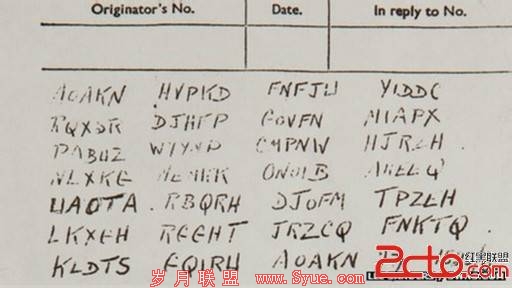 Originator's No. Date. In reply to No.
AOAKN HVPKD FNFJU YIDDC
RQXSR DJHFP GOVFN MIAPX
PABUZ WYYNP CMPNW HJRZH
NLXKG MEMKK ONOIB AKEEQ
UAOTA RBQRH DJOFM TPZEH
LKXGH RGGHT JRZCQ FNKTQ
KLDTS GQIRH AOAKN
岁月联盟 www.Syue.com
2cto.com 红黑联盟